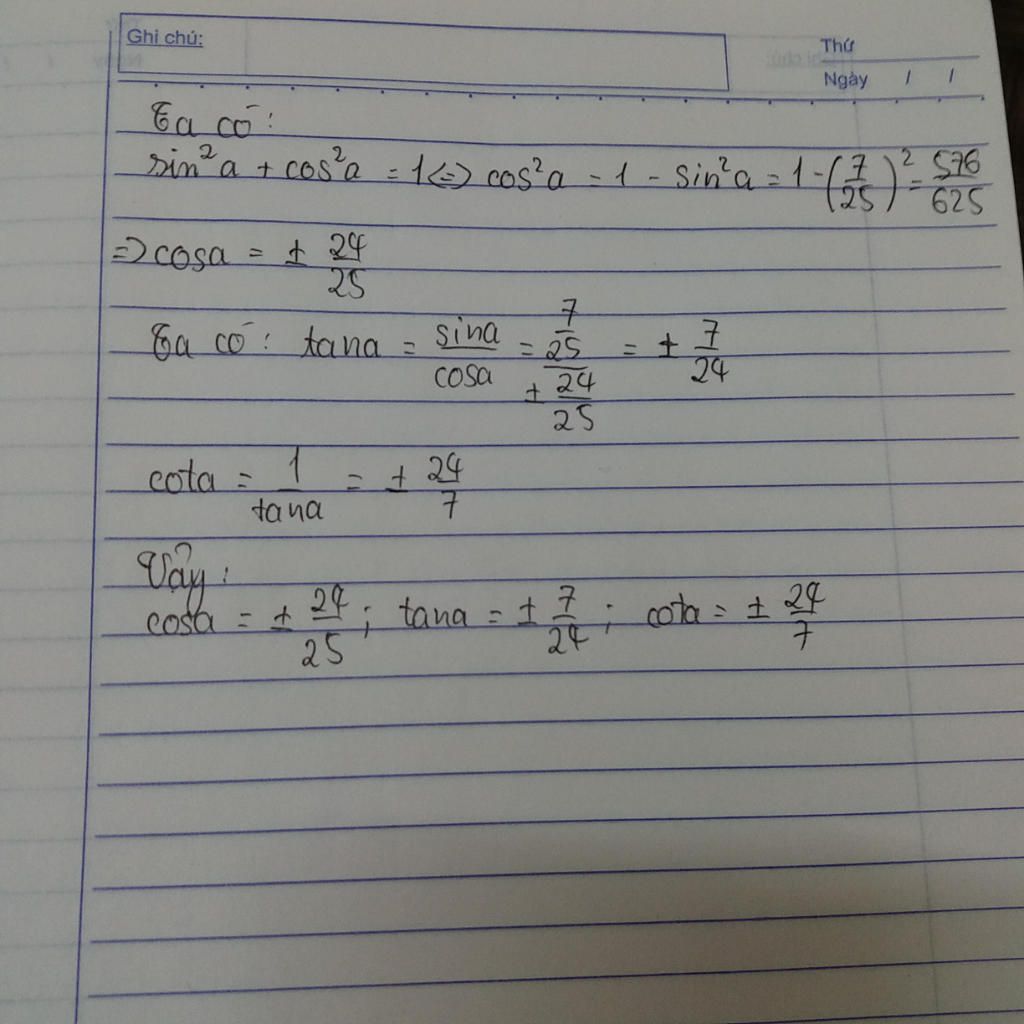 Ghi chú:
Thứ
Ngày / /
Ta có:
sin²a + cos²a = 1 <=> cos²a = 1 - sin²a = 1 - (7/25)² = 576/625
=> cosa = ± 24/25
Ta có: tana = sina/cosa = (7/25)/(± 24/25) = ± 7/24
cota = 1/tana = ± 24/7
Vậy:
cosa = ± 24/25; tana = ± 7/24; cota = ± 24/7